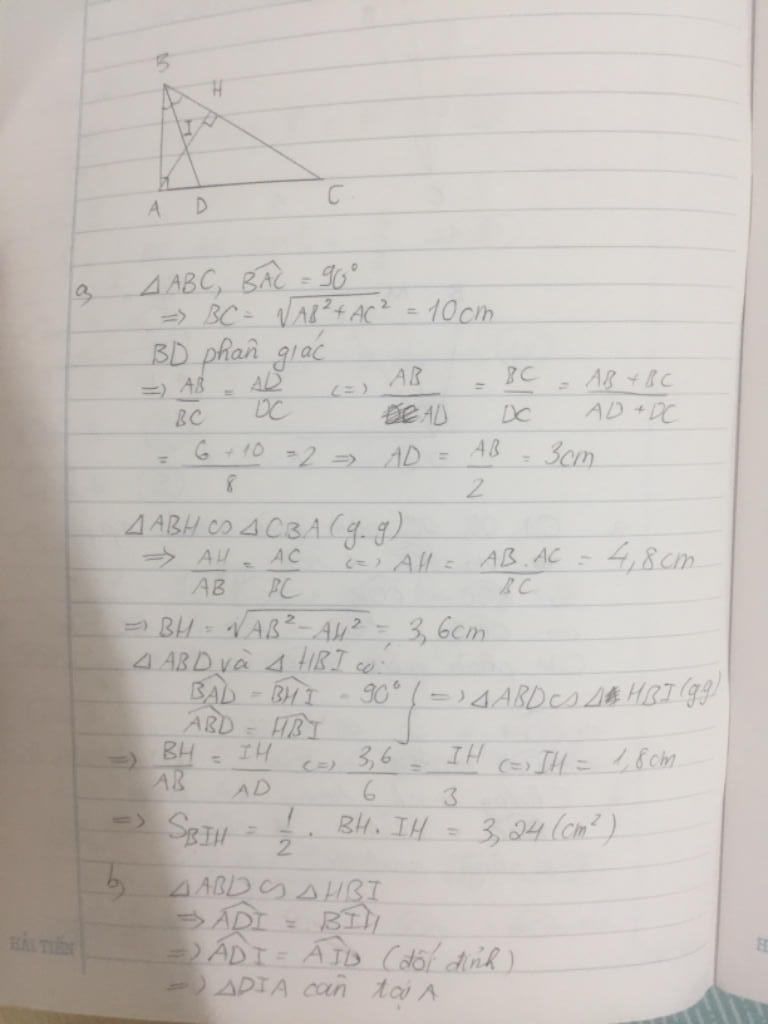 B
H
I
A D C
a, △ABC, BAC^ = 90°
=> BC = √(AB² + AC²) = 10cm
BD phân giác
=> AB/BC = AD/DC <=> AB/AD = BC/DC = (AB + BC)/(AD + DC)
= (6 + 10)/8 = 2 => AD = AB/2 = 3cm
△ABH ∽ △CBA (g.g)
=> AH/AB = AC/BC <=> AH = AB.AC/BC = 4,8cm
=> BH = √(AB² - AH²) = 3,6cm
△ABD và △HBI có:
BAD^ = BHI^ = 90°
ABD^ = HBI^ } => △ABD ∽ △HBI (gg)
=> BH/AB = IH/AD <=> 3,6/6 = IH/3 <=> IH = 1,8cm
=> S_BIH = 1/2 . BH. IH = 3,24 (cm²)
b, △ABD ∽ △HBI
=> ADI^ = BIH^
=> ADI^ = AID^ (đối đỉnh)
=> △DIA cân tại A
HẢI TIẾN
H